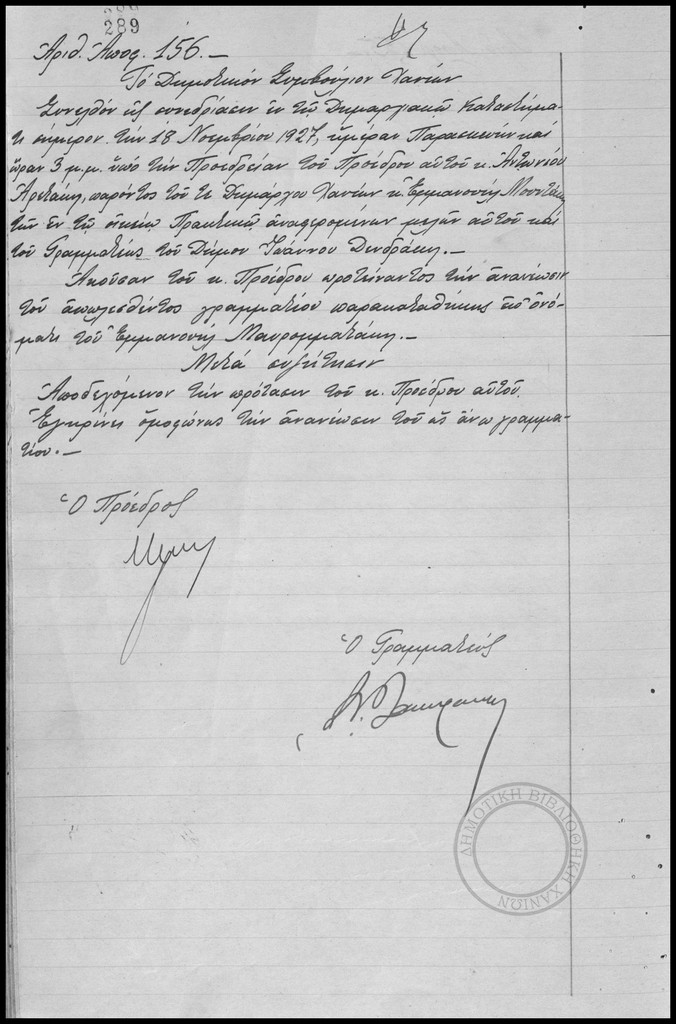 289
Ἀριθ. Ἀποφ. 156.-
Τό Δημοτικόν Συμβούλιον Χανίων
Συνελθόν εἰς συνεδρίασιν ἐν τῷ Δημαρχιακῷ Καταστήμα-
τι σήμερον τήν 18 Νοεμβρίου 1927, ἡμέραν Παρασκευήν καί
ὥραν 3 μ.μ. ὑπό τήν Προεδρείαν τοῦ Προέδρου αὐτοῦ κ. Ἀντωνίου
παρόντος τοῦ τε Δημάρχου Χανίων κ. Ἐμμανουήλ Μουντάκη
τῶν ἐν τῷ οἰκείῳ Πρακτικῷ ἀναφερομένων μελῶν αὐτοῦ καί
τοῦ Γραμματέως τοῦ Δήμου Ἰωάννου Δενδράκη.-
Ἀκοῦσαν τοῦ κ. Προέδρου προτείναντος τήν ἀνανέωσιν
τοῦ ἀπωλεσθέντος γραμματίου παρακαταθήκης ἐπ' ὀνό-
ματι τοῦ Ἐμμανουήλ Μαυρομματάκη.-
Μετά συζήτησιν
Ἀποδεχόμενον τήν πρότασιν τοῦ κ. Προέδρου αὐτοῦ.
Ἐγκρίνει ὁμοφώνως τήν ἀνανέωσιν τοῦ ὡς ἄνω γραμμα-
τίου.-
Ὁ Πρόεδρος
Ὁ Γραμματεύς
ΔΗΜΟΤΙΚΗ ΒΙΒΛΙΟΘΗΚΗ ΧΑΝΙΩΝ